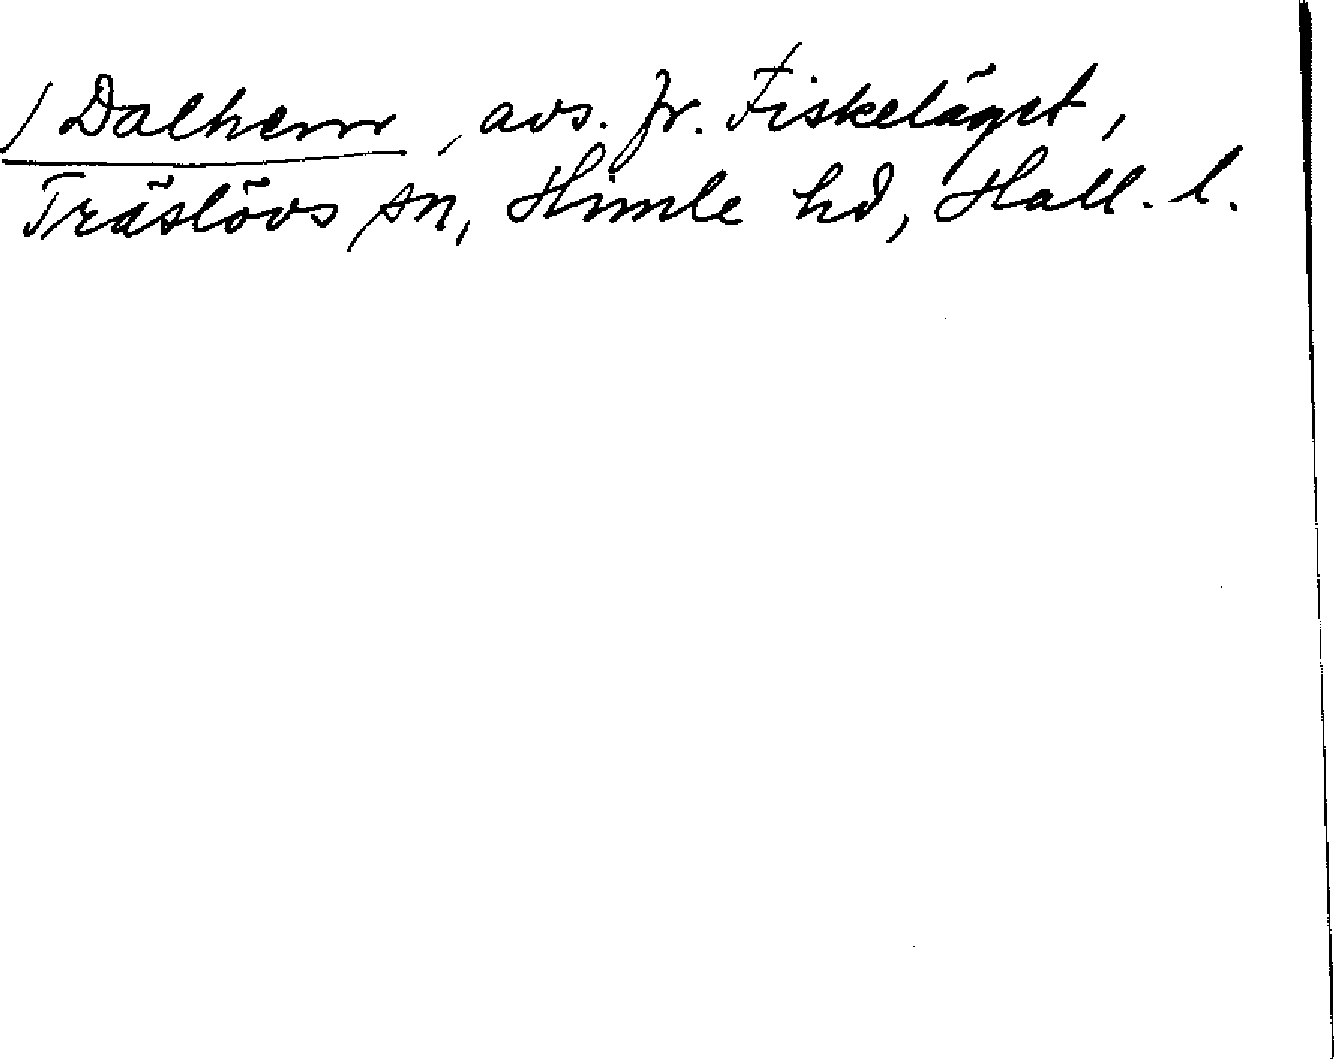 / Dalhem, avs. fr. Fiskeläget,
Träslövs sn, Himle hd, Hall. l.